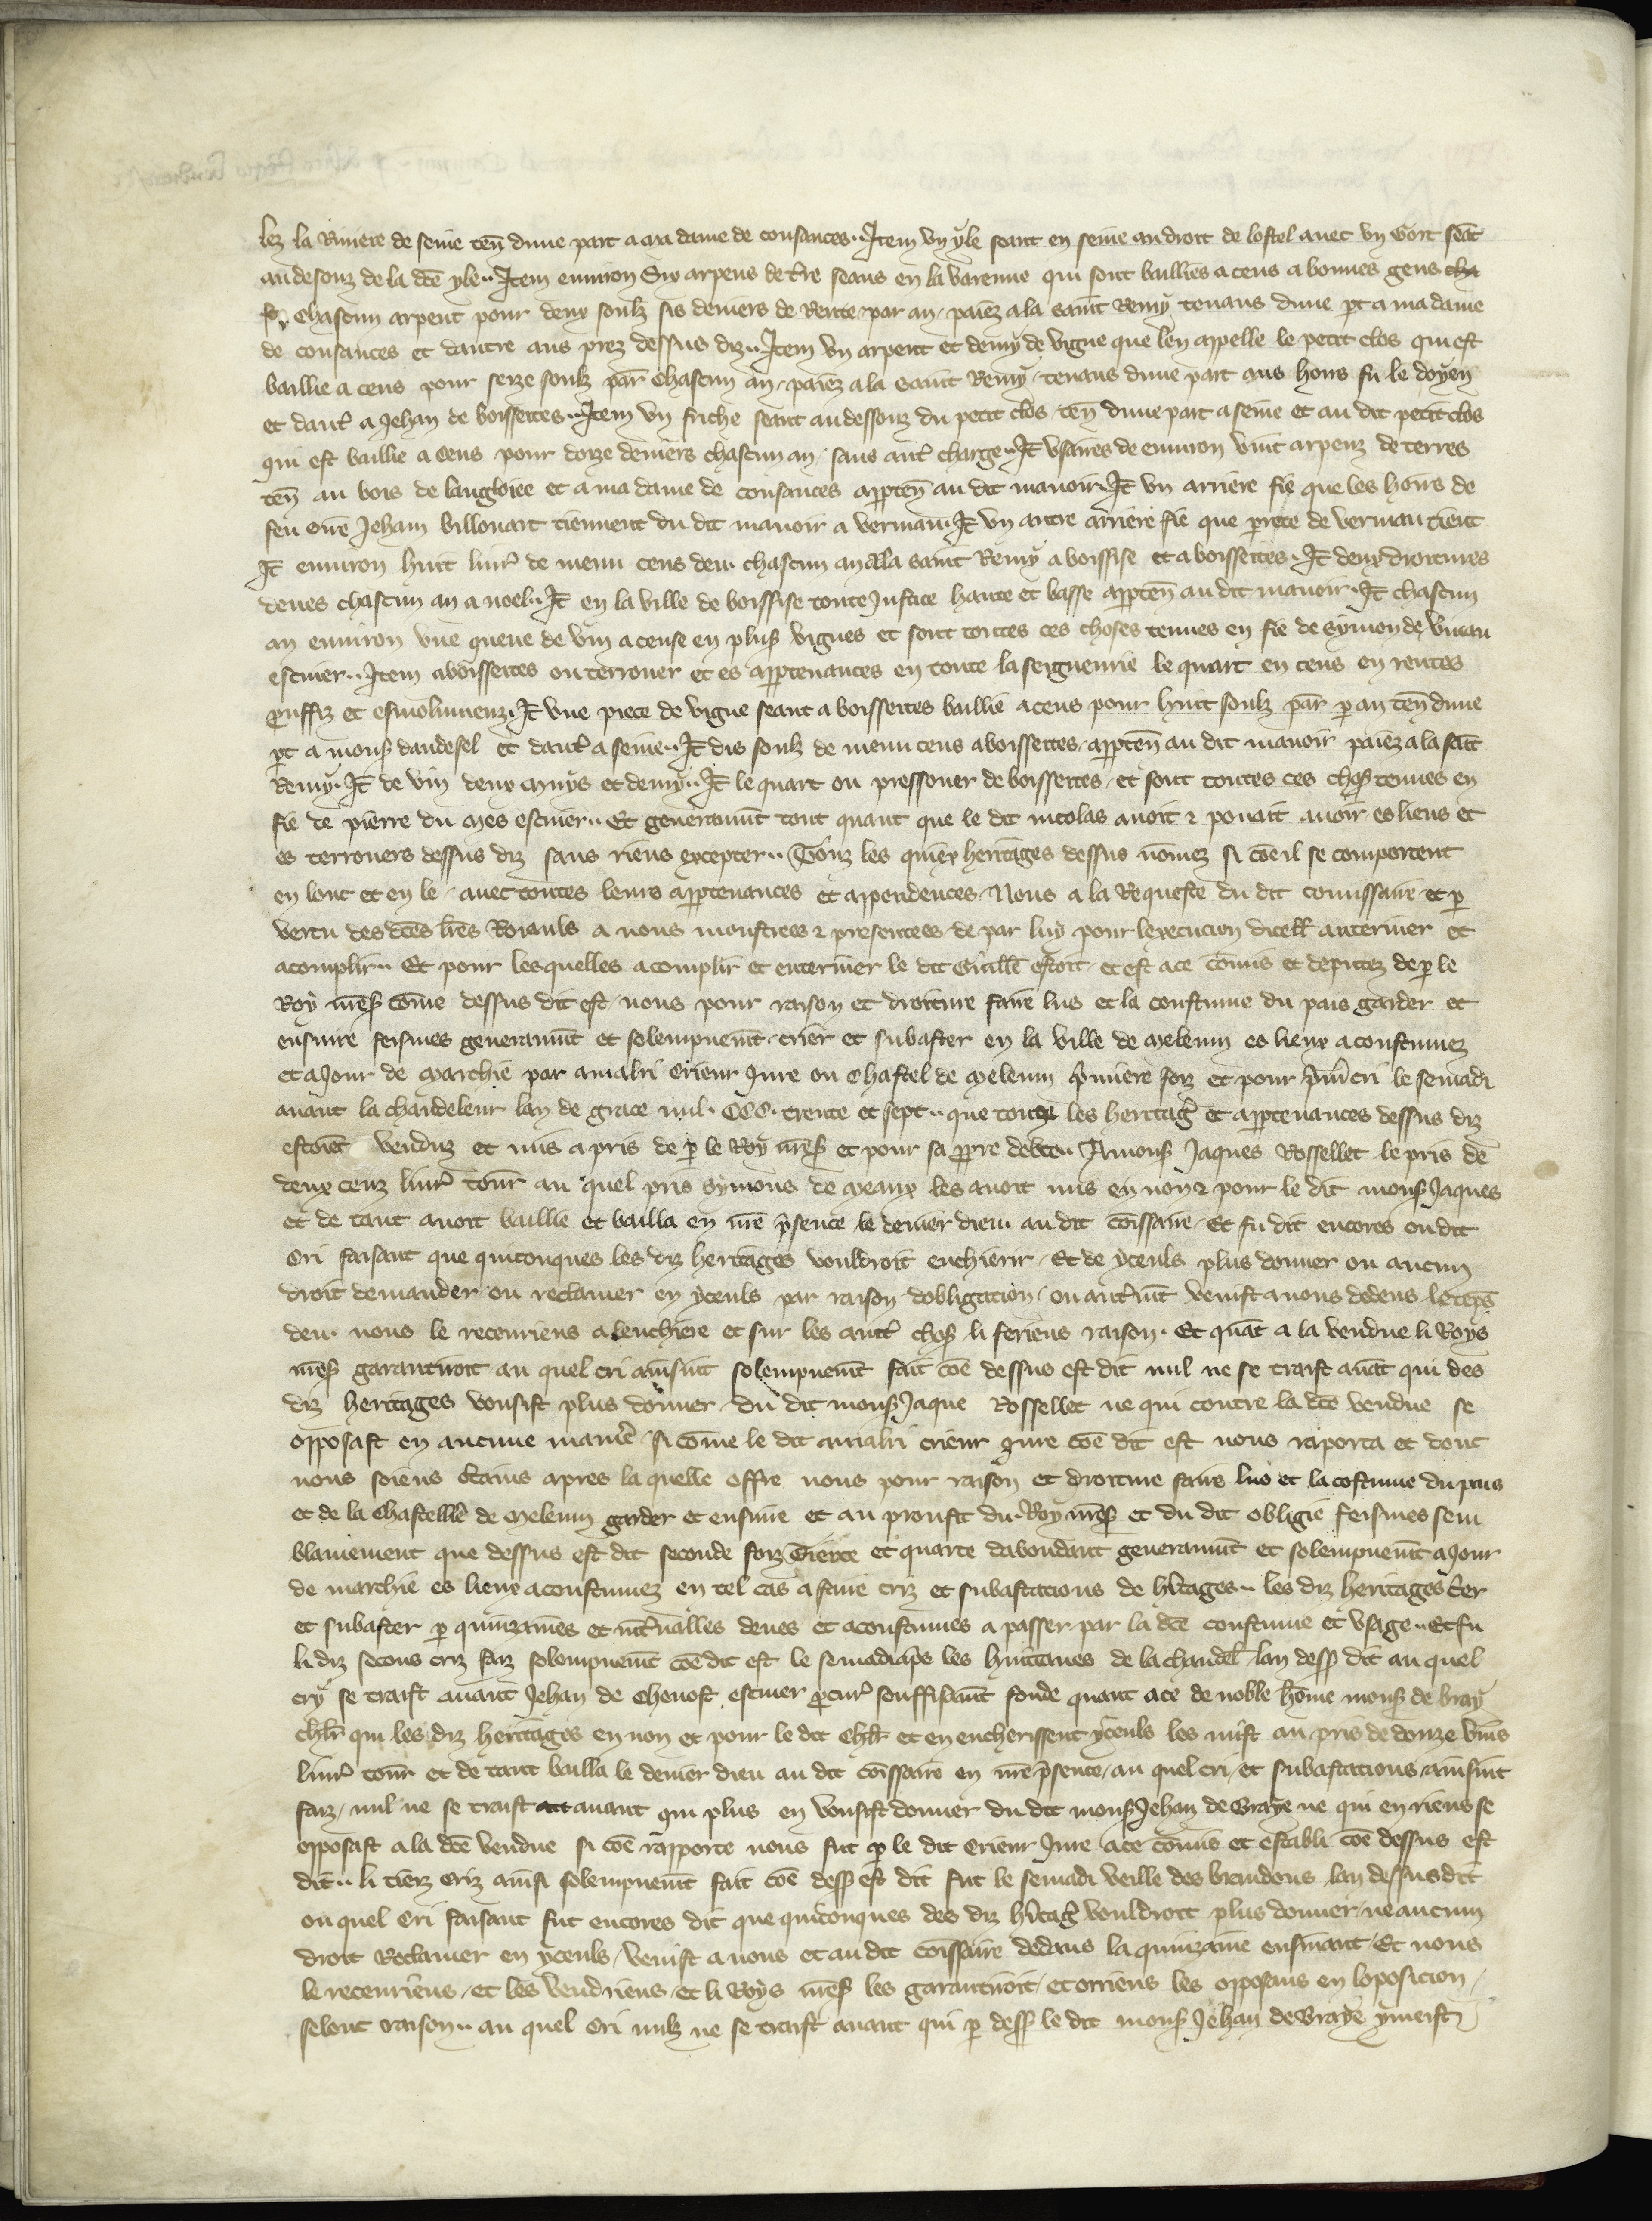 lez la Riuiere de seine ten̄ dune part a ma dame de consances ·· Item vn yle seant en seine audroit de lostel auec vn Gort seāt
au desouz de la dc̄e yle ·· Item enuiron Six arpens de t̄re seans en la varenne qui sont bailliés a cens a bonnes gens cha
chascun arpent pour deux soulz sis deniers de Rente par an / paiez a la saint Remy tenans dune pt a ma dame
de consances et dautre aus prez dessus diz ·· Item vn arpent et demy de vigne que len appelle le petit clos qui est
baillie a cens pour seize soulz par̄ chascun an / paiez a la saint Remy / tenans dune part aus hoirs fu le doyen
et daut̄ a Jehan de boissettes ·· Item vn friche seant au dessouz du petit clos ten̄ dune part a seine et au dit petit clos
qui est baillie a cens pour douze deniers chascun an / sans aut̄ charge ·· It̄ vsaires de enuiron vint arpenz de terres
ten̄ au bois de langloiee et a ma dame de consances apptēn au dit manoir · It̄ vn arriere fie que les hoirs de
feu Jeham billouart tiennent du dit manoir a vermau · It̄ vn autre arriere fie que perrete de vermau tient
It̄ enuiron huit liur̄ de menu cens deu chascun an a la saint Remy a boissise et a boissettes · It̄ deux droitures
deues chascun an a noel · It̄ en la ville de boissise toute Justice haute et basse apptēn au dit manoir · It̄ chascun
an enuiron vne queue de vin a cense en plus̄ vignes et sont toutes ces choses tenues en fie de symon de
escuier ·· Item a boissettes ou terrouer et es apptenances en toute la seigneurie le quart en cens en rentes
prouffiz et esmolumenz · It̄ vne piece de vigne seant a boissettes baillie a cens pour huit soulz par̄ p an ten̄ dune
pt a mons̄ dandesel et daut̄ a seine ·· It̄ dis soulz de menu cens a boissettes / apptēn au dit manoir paiez a la sāīt
Remy · It̄ de vin deux muys et demy ·· It̄ le quart ou pressouer de boissettes / et sont toutes ces chos̄ tenues en
fie de pierre du mes escuier ·· Et generaumt̄ tout quant que le dit nicolas auoit ⁊ pouait auoir es liens et
es terrouers dessus diz sans riens excepter ·· Touz les quiex heritages dessus nom̄ez si cōe il se comportent
en lonc et en le / auec toutes leurs apptenances et appendences / Nous a la Requeste du dit comissaire et p
vertu des dc̄es lr̄es Roiauls a nous monstrees ⁊ presentees de par luy pour lexecucion dicell̄ anteriner et
acomplir ·· Et pour lesquelles acomplir et enteriner le dit Guill̄e estoit et est a ce comis et deputez de p le
Roy nr̄es̄ com̄e dessus dit est / nous pour raison et droiture faire lus et la coustume du pais garder et
ensuire feismes generaumt̄ et solempnemt̄ crier et subaster en la ville de meleum es lieux acoustumez
et a Jour de marchie par amalri Crieur Jure ou Chastel de meleum p̄miere foiz et pour p̄m̄ cri le semadi
auant la chandeleur lan de grace mil · CCC · trente et sept ·· que touz les heritaḡ et apptenances dessus diz
estoiēt venduz et mis a pris de p le Roy nr̄es̄ et pour sa ppre debte ·· A mons̄ Jaques Rossellet le pris de
deux cenz liur̄ tour̄ au quel pris symons de meaux les auoit mis en non ⁊ pour le dit mons̄ Jaques
et de tant auoit baillie et bailla en nr̄e p̄sence le denier dieu au dit cōissaire / Et fu dit encores ou dit
Cri faisant que quiconques les diz heritages vouldroit enchierir / Et de yceuls plus donner ou aucun
droit demander ou reclamer en yceuls par raison dobligacion / ou aut̄mt̄ venist a nous dedens le tēps
deu · nous le receuriens a lenchiere et sur les aut̄ chos̄ li feriens raison · Et quāt a la vendue li Roys
nr̄es̄ garantiroit au quel cri ainsint solempnemt̄ fait cōe dessus est dit nul ne se traist auāt qui des
diz heritages vousist plus donner du dit mons̄ Jaque Rossellet ne qui contre la dc̄e vendue se
opposast en aucune maniē / si com̄e le dit amalri crieur jure cōe dit est nous raporta et dont
nous soiens c̄tains apres la quelle offre nous pour raison et droiture faire lus et la costume du pais
et de la Chastellie de meleum garder et ensuire et au proufit du Roy nr̄es̄ et du dit obligie feismes sem
blamement que dessus est dit seconde foiz Tierce et quarte dabondant generaumt̄ et solempnemt̄ a Jour
de marchie es lieux acoustumez en tel cas a faire criz et subastacions de h̄itages ·· les diz heritages c̄ier
et subaster p quinzaines et int̄ualles deues et acoustumes a passer par la dc̄e coustume et vsage ·· Et fu
li diz secons criz faiz solempnemt̄ cōe dit est le semadi ap̄s les huitieues de la chandel̄ lan dess̄ dit au quel
cry se traist auant Jehan de Chenost escuier pcur̄ souffisaumt̄ fonde quant a ce de noble hom̄e mons̄ de bray
chl̄r qui les diz heritages en non et pour le dit chl̄r et en encherissent yceuls les mist au pris de douze vins
liur̄ tour̄ et de tant bailla le denier dieu au dit cōissaire en nr̄e p̄sence / au quel cri / et subastacions / ainsint
faiz / nul ne se traist auant qui plus en vousist donner du dit mons̄ Jehan de Braye ne qui en riens se
opposast a la dc̄e vendue si cōe rapporte nous fut p le dit Crieur Jure a ce comis et establi cōe dessus est
dit ·· li tierz criz ainsi solempnemt̄ fait cōe dess̄ est dit fut le semadi veille des brandons lan dessusdit
ou quel Cri faisant fut encores dit que quiconques des diz h̄itaḡ vouldroit plus donner / ne aucun
droit Reclamer en yceuls / venist a nous et au dit cōissaire dedens la quinzaine ensiuant / Et nous
le receuriens / et les vendriens / et li Roys nr̄es̄ les garantiroit / et orriens les opposans en loposicion /
selonc raison ·· au quel Cri nulz ne se traist auant qui p dess̄ le dit mons̄ Jehan de Braye y meist